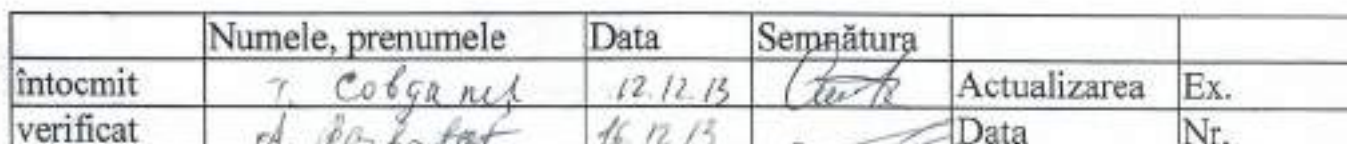 Numele, prenumele Data Semnătura
întocmit 12.12.13 Actualizarea Ex.
verificat 16.12.13 Data Nr.